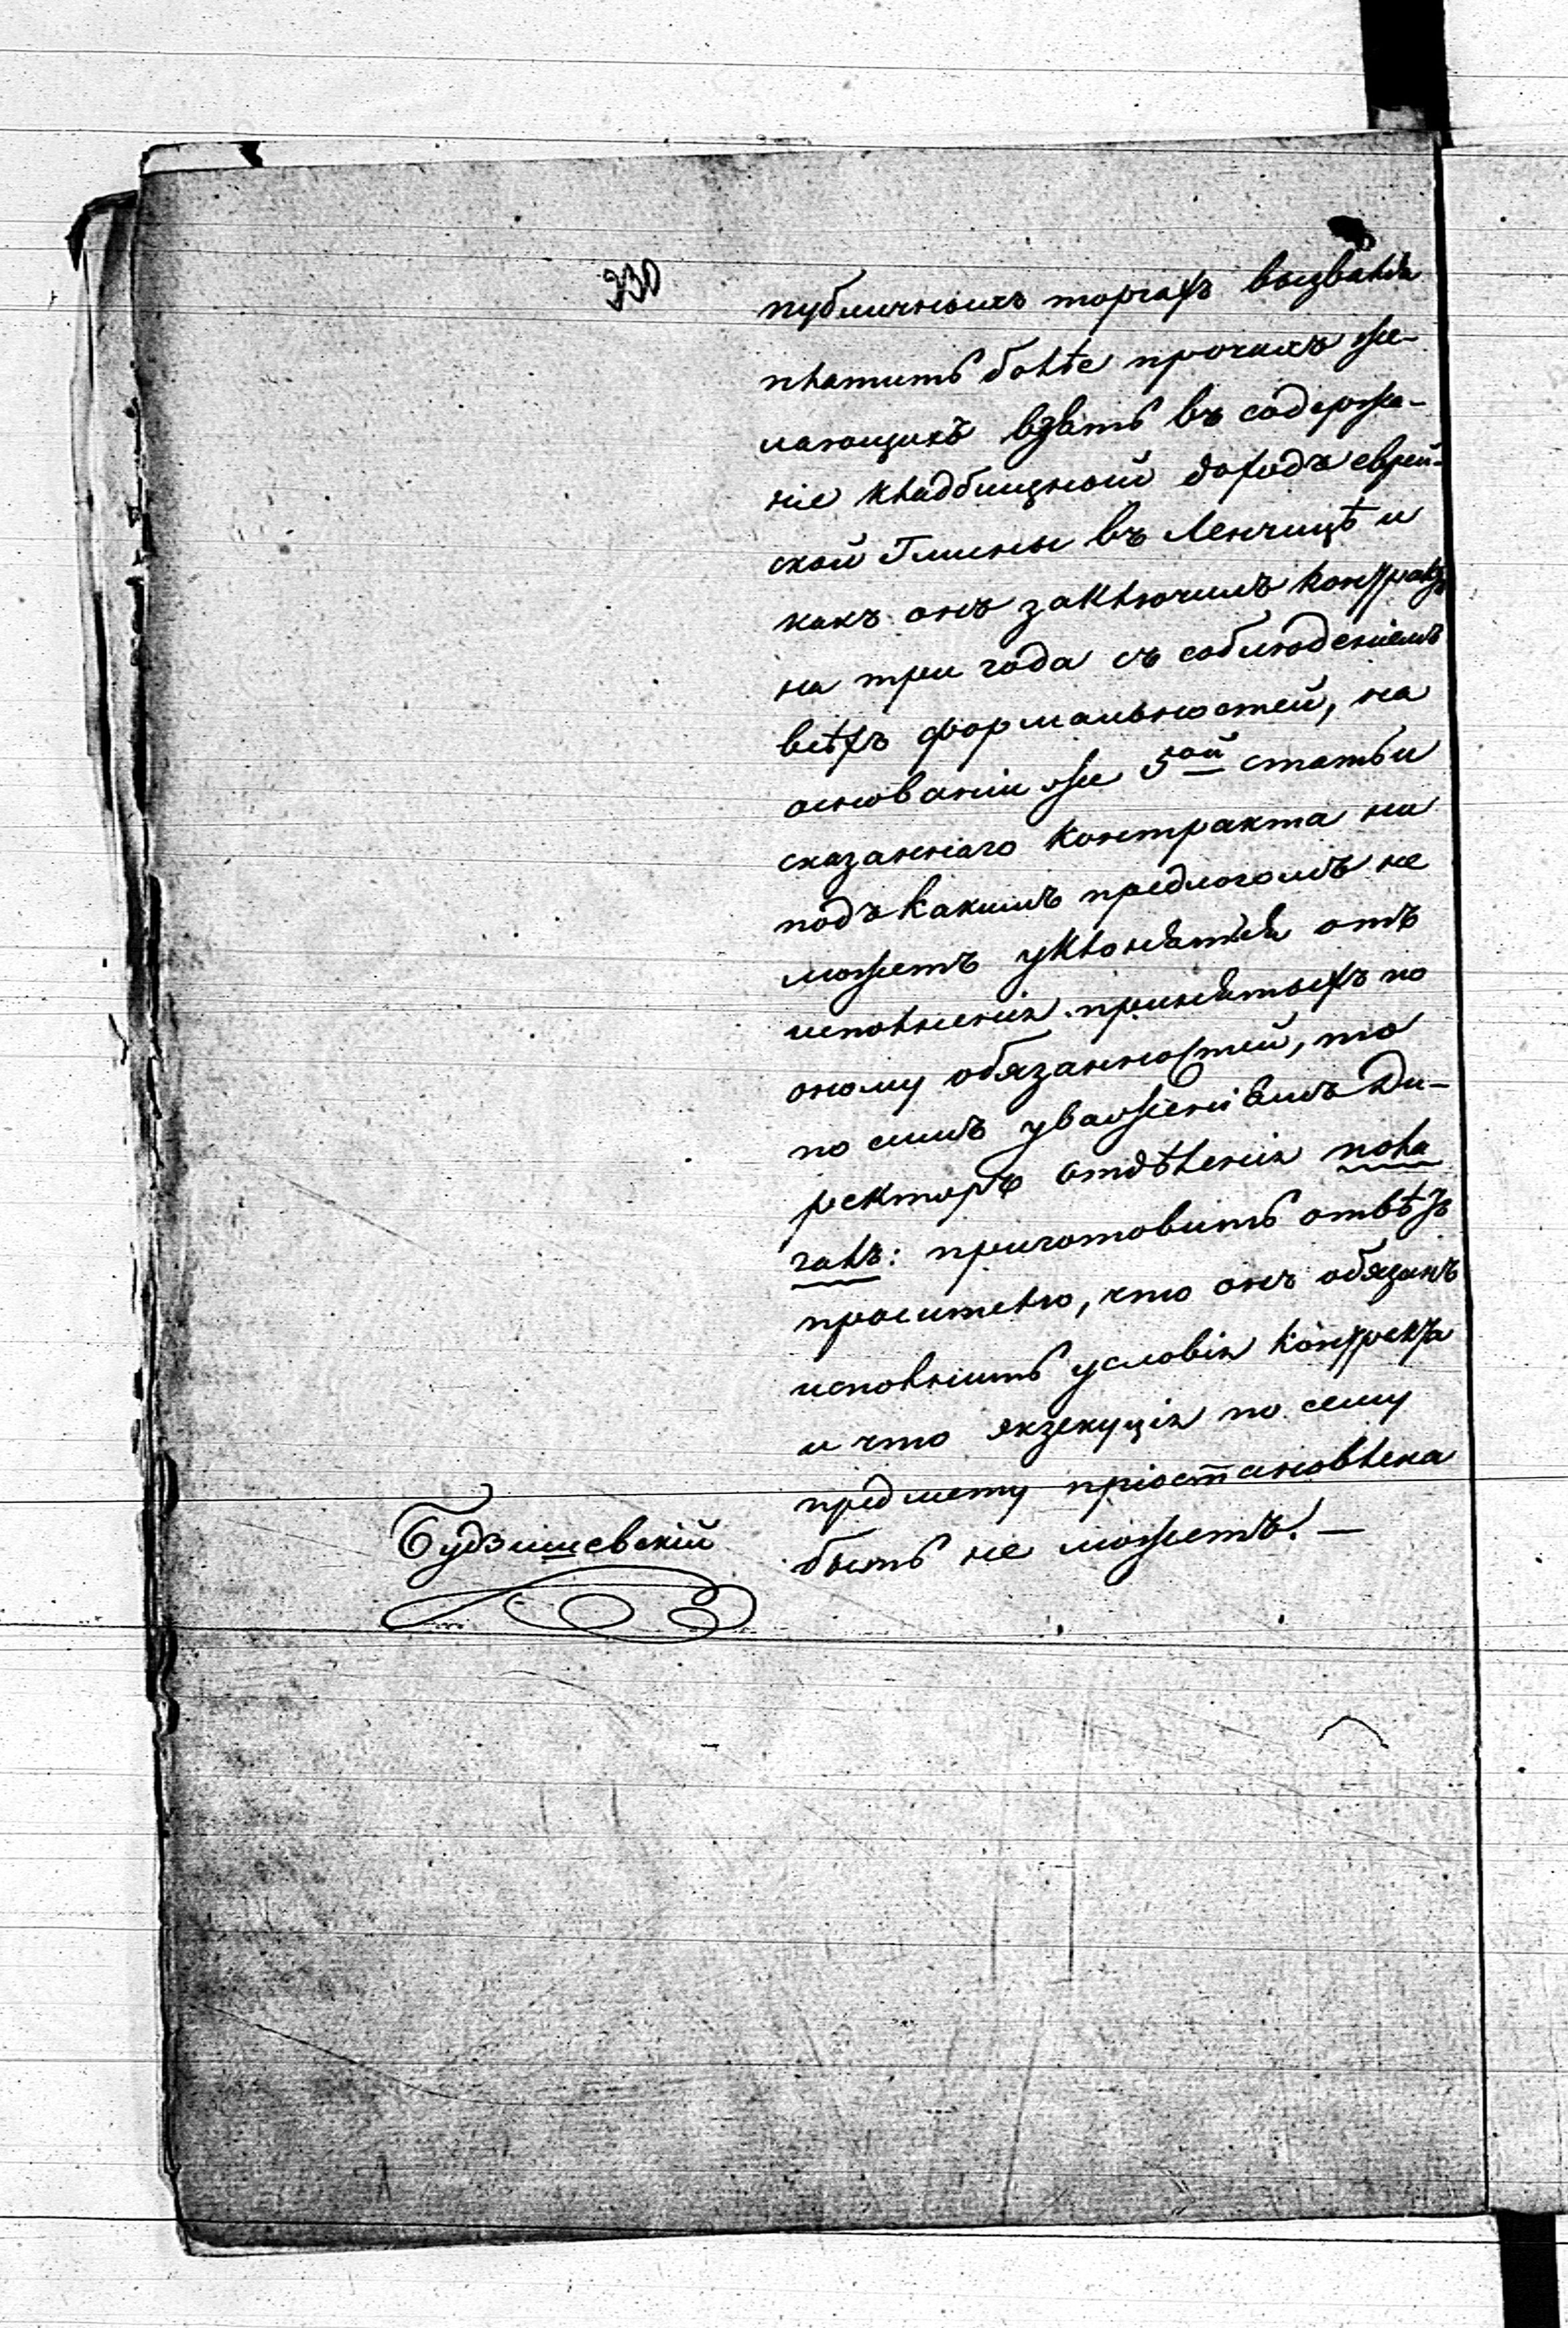 330
публичныхъ торгахъ вызвался
платить болѣе прочихъ же-
лающихъ взять въ содержа-
ніе кладбищной доходъ еврей-
ской Гмины въ Ленчицѣ и
какъ онъ заключилъ контрактъ
на три года съ соблюденіемъ
всѣхъ формальностей, на
основаніи же 5ой статьи
сказаннаго контракта ни
подъ какимъ предлогомъ не
можетъ уклонятся отъ
исполненія принятыхъ по
оному обязанностей, то
по симъ уваженіямъ Ди-
ректоръ отдѣленія пола
галъ: приготовить отвѣтъ
просителю, что онъ обязанъ
исполнить условія контракта
и что экзекуція по сему
предмету пріостановлена
быть не можетъ. —
Будзишевскій